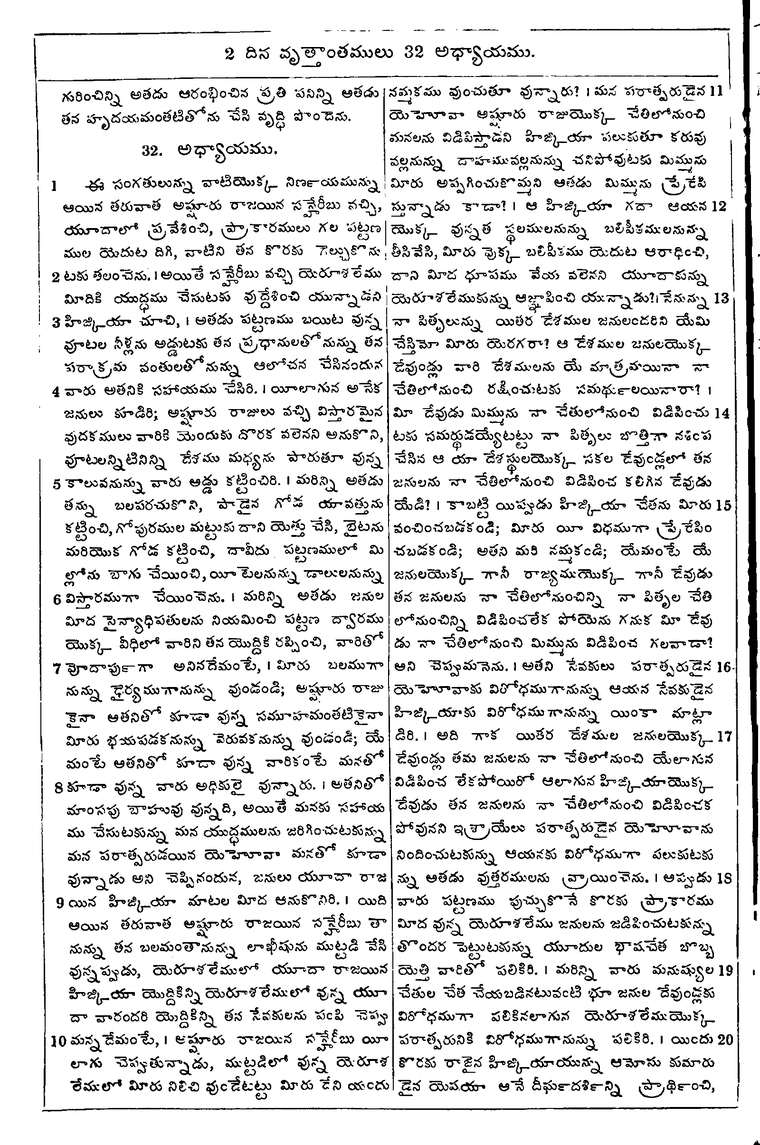 2 దిన వృత్తాంతములు 32 అధ్యాయము.
గురించిన్ని అతడు ఆరంభించిన ప్రతి పనిని ఆతడు
తన హృదయమంతటితోను చేసి వృద్ధి పొందెను.
32. అధ్యాయము.
1 ఈ సంగతులున్ను వాటియొక్క నిర్ణయమున్ను
ఆయిన తరువాత అష్షూరు రాజయిన సన్హేరీబు వచ్చి,
యూదాలో ప్రవేశించి, ప్రాకారములు గల పట్టణ
ముల యెదుట దిగి, వాటిని తన కొరకు గెల్చుకొను
2 టకు తలంచెను. । అయితే సన్హేరీబు వచ్చి యెరూశలేము
మీదికి యుద్ధము చేసుటకు వుద్దేశించి యున్నాడని
3 హిజ్కియా చూచి, । అతడు పట్టణము బయిట వున్న
వూటల నీళ్లను అడ్డుటకు తన ప్రధానులతోనున్ను తన
పరాక్రమ వంతులతోనున్ను ఆలోచన చేసినందున
4 వారు అతనికి సహాయము చేసిరి. । యీలాగున అనేక
జనులు కూడిరి; అష్షూరు రాజులు వచ్చి విస్తారమైన
వుదకములు వారికి యెందుకు దొరక వలెనని అనుకొని,
వూటలన్నిటినిన్ని దేశము మధ్యను పారుతూ వున్న
5 కాలువనున్ను వారు అడ్డు కట్టించిరి. । మరిన్ని అతడు
తన్ను బలపరచుకొని, పాడైన గోడ యావత్తును
కట్టించి, గోపురముల మట్టుకు దాని యెత్తు చేసి, బైటను
మరియొక గోడ కట్టించి, దావీదు పట్టణములో మి
ల్లోను బాగు చేయించి, యీటెలనున్ను డాలులనున్ను
6 విస్తారముగా చేయించెను. । మరిన్ని అతడు జనుల
మీద సైన్యాధిపతులను నియమించి పట్టణ ద్వారము
యొక్క వీధిలో వారిని తన యొద్దికి రప్పించి, వారితో
7 వోదార్పుగా అనినదేమంటే, । మీరు బలముగా
నున్ను ధైర్యముగానున్ను వుండండి; అష్షూరు రాజు
కైనా ఆతనితో కూడా వున్న సమూహమంతటికైనా
మీరు భయపడకనున్ను వెరువకనున్ను వుండండి; యే
మంటే ఆతనితో కూడా వున్న వారికంటే మనతో
8 కూడా వున్న వారు అధికులై వున్నారు. । అతనితో
మాంసపు బాహువు వున్నది, అయితే మనకు సహాయ
ము చేసుటకున్ను మన యుద్ధములను జరిగించుటకున్ను
మన పరాత్పరుడయిన యెహోవా మనతో కూడా
వున్నాడు అని చెప్పినందున, జనులు యూదా రాజ
9 యిన హిజ్కియా మాటల మీద ఆనుకొనిరి. । యిది
ఆయిన తరువాత అష్షూరు రాజయిన సన్హేరీబు తా
నున్ను తన బలమంతానున్ను లాఖీషును ముట్టడి వేసి
వున్నప్పుడు, యెరూశలేములో యూదా రాజయిన
హిజ్కియా యొద్దికిన్ని యెరూశలేములో వున్న యూ
దా వారందరి యొద్దికిన్ని తన సేవకులను పంపి చెప్ప
10 మన్నదేమంటే, । అష్షూరు రాజయిన సన్హేరీబు యీ
లాగు చెప్పుతున్నాడు, ముట్టడిలో వున్న యెరూశ
లేములో మీరు నిలిచి వుండేటట్టు మీరు దేని యందు
నమ్మకము వుంచుతూ వున్నారు? । మన పరాత్పరుడైన 11
యెహోవా అష్షూరు రాజుయొక్క చేతిలోనుంచి
మనలను విడిపిస్తాడని హిజ్కియా పలుకుతూ కరువు
వల్లనున్ను దాహమువల్లనున్ను చనిపోవుటకు మిమ్మును
మీరు అప్పగించుకొమ్మని ఆతడు మిమ్మును ప్రేరేపి
స్తున్నాడు కాడా? । ఆ హిజ్కియా గదా ఆయన 12
యొక్క వున్నత స్థలములనున్ను బలిపీఠములనున్ను
తీసివేసి, మీరు వొక్క బలిపీఠము యెదుట ఆరాధించి,
దాని మీద ధూపము వేయ వలెనని యూదాకున్ను
యెరూశలేముకున్ను ఆజ్ఞాపించి యున్నాడు? । నేనున్ను 13
నా పితృలున్ను యితర దేశముల జనులందరిని యేమి
చేస్తిమో మీరు యెరగరా? ఆ దేశముల జనులయొక్క
దేవుండ్లు వారి దేశములను యే మాత్రమయినా నా
చేతిలోనుంచి రక్షించుటకు సమర్థులయినారా? ।
మీ దేవుడు మిమ్మును నా చేతులోనుంచి విడిపించు 14
టకు సమర్థుడయ్యేటట్టు నా పితృలు బొత్తిగా నశింప
చేసిన ఆ యా దేశస్థులయొక్క సకల దేవుండ్లలో తన
జనులను నా చేతిలోనుంచి విడిపించ కలిగిన దేవుడు
యేడి? । కాబట్టి యిప్పుడు హిజ్కియా చేతను మీరు 15
వంచించబడకండి; మీరు యీ విధముగా ప్రేరేపిం
చబడకండి; అతని మరి నమ్మకండి; యేమంటే యే
జనులయొక్క గానీ రాజ్యముయొక్క గానీ దేవుడు
తన జనులను నా చేతిలోనుంచిన్ని నా పితృల చేతి
లోనుంచిన్ని విడిపించలేక పోయెను గనుక మీ దేవు
డు నా చేతిలోనుంచి మిమ్మును విడిపించ గలవాడా?
అని చెప్పుమనెను. । అతని సేవకులు పరాత్పరుడైన 16
యెహోవాకు విరోధముగానున్ను ఆయన సేవకుడైన
హిజ్కియాకు విరోధముగానున్ను యింకా మాట్లా
డిరి. । అది గాక యితర దేశముల జనులయొక్క 17
దేవుండ్లు తమ జనులను నా చేతిలోనుంచి యేలాగున
విడిపించ లేకపోయిరో ఆలాగున హిజ్కియాయొక్క
దేవుడు తన జనులను నా చేతిలోనుంచి విడిపించక
పోవునని ఇశ్రాయేలు పరాత్పరుడైన యెహోవాను
నిందించుటకున్ను ఆయనకు విరోధముగా పలుకుటకు
న్ను అతడు వుత్తరములను వ్రాయించెను. । అప్పుడు 18
వారు పట్టణము పుచ్చుకొనే కొరకు ప్రాకారము
మీద వున్న యెరూశలేము జనులను జడిపించుటకున్ను
తొందర పెట్టుటకున్ను యూదుల భాషచేత బొబ్బ
యెత్తి వారితో పలికిరి. । మరిన్ని వారు మనుష్యుల 19
చేతుల చేత చేయబడినటువంటి భూ జనుల దేవుండ్లకు
విరోధముగా పలికినలాగున యెరూశలేముయొక్క
పరాత్పరునికి విరోధముగానున్ను పలికిరి. । యిందు 20
కొరకు రాజైన హిజ్కియాయున్ను ఆమోసు కుమారు
డైన యెషయా ఆనే దీర్ఘదర్శిన్ని ప్రార్థించి,